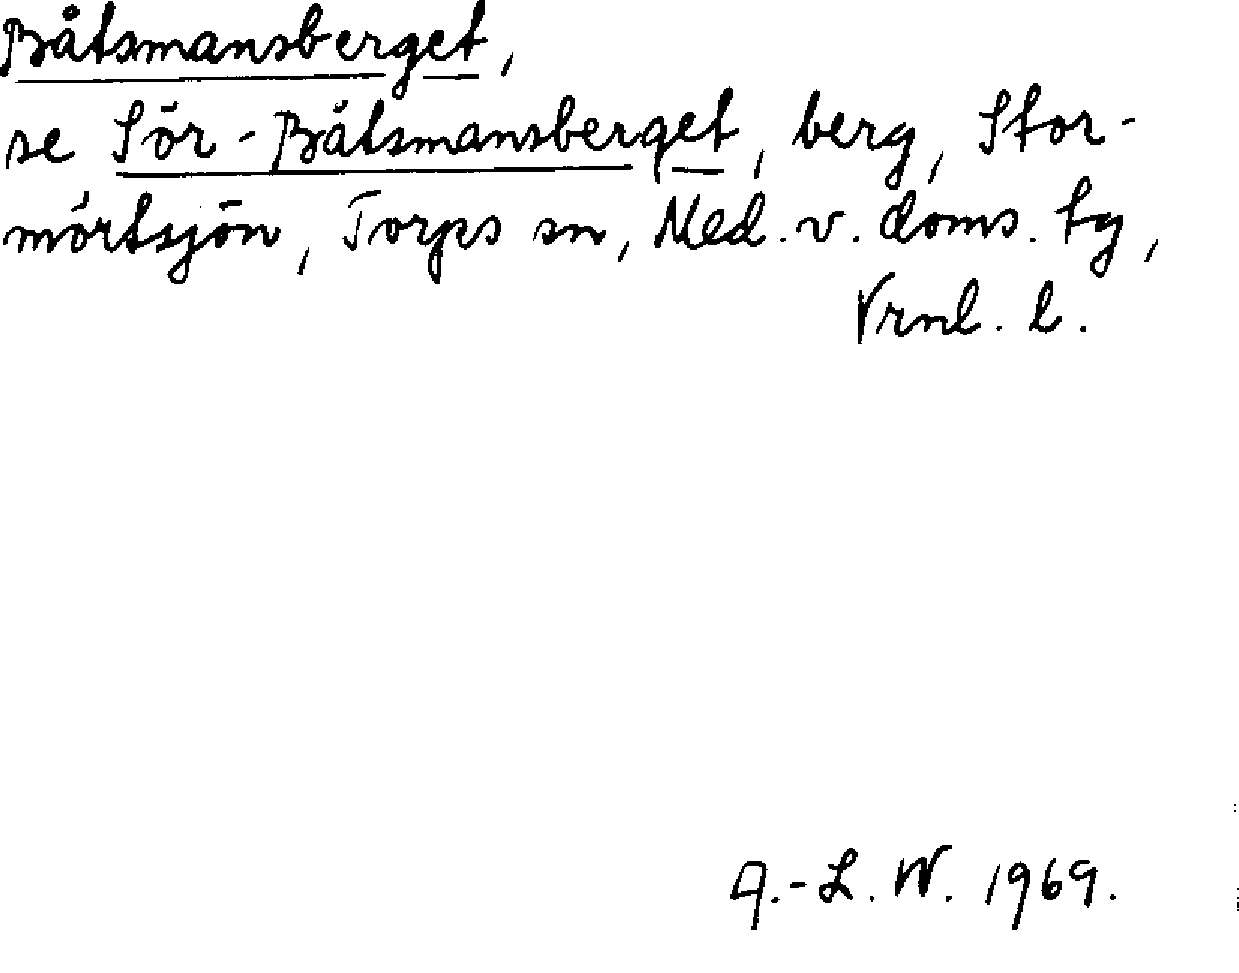 Båtsmansberget,
se Sör-Båtsmansberget, berg, Stor-
mörtsjön, Torps sn, Med. v. doms. tg,
Vrnl. l.
A.-L. W. 1969.